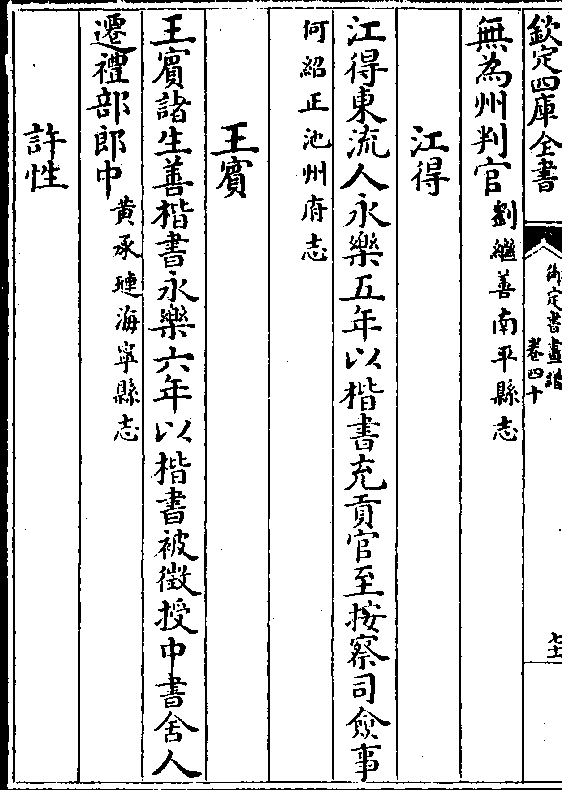 欽定四庫全書
御定書畫譜
卷四十
七十一
無為州判官劉繼善南平縣志
江得
江得東流人永樂五年以楷書充貢官至按察司僉事
何紹正池州府志
王賓
王賓諸生善楷書永樂六年以楷書被徵授中書舍人
遷禮部郎中黄承璉海寧縣志
許性